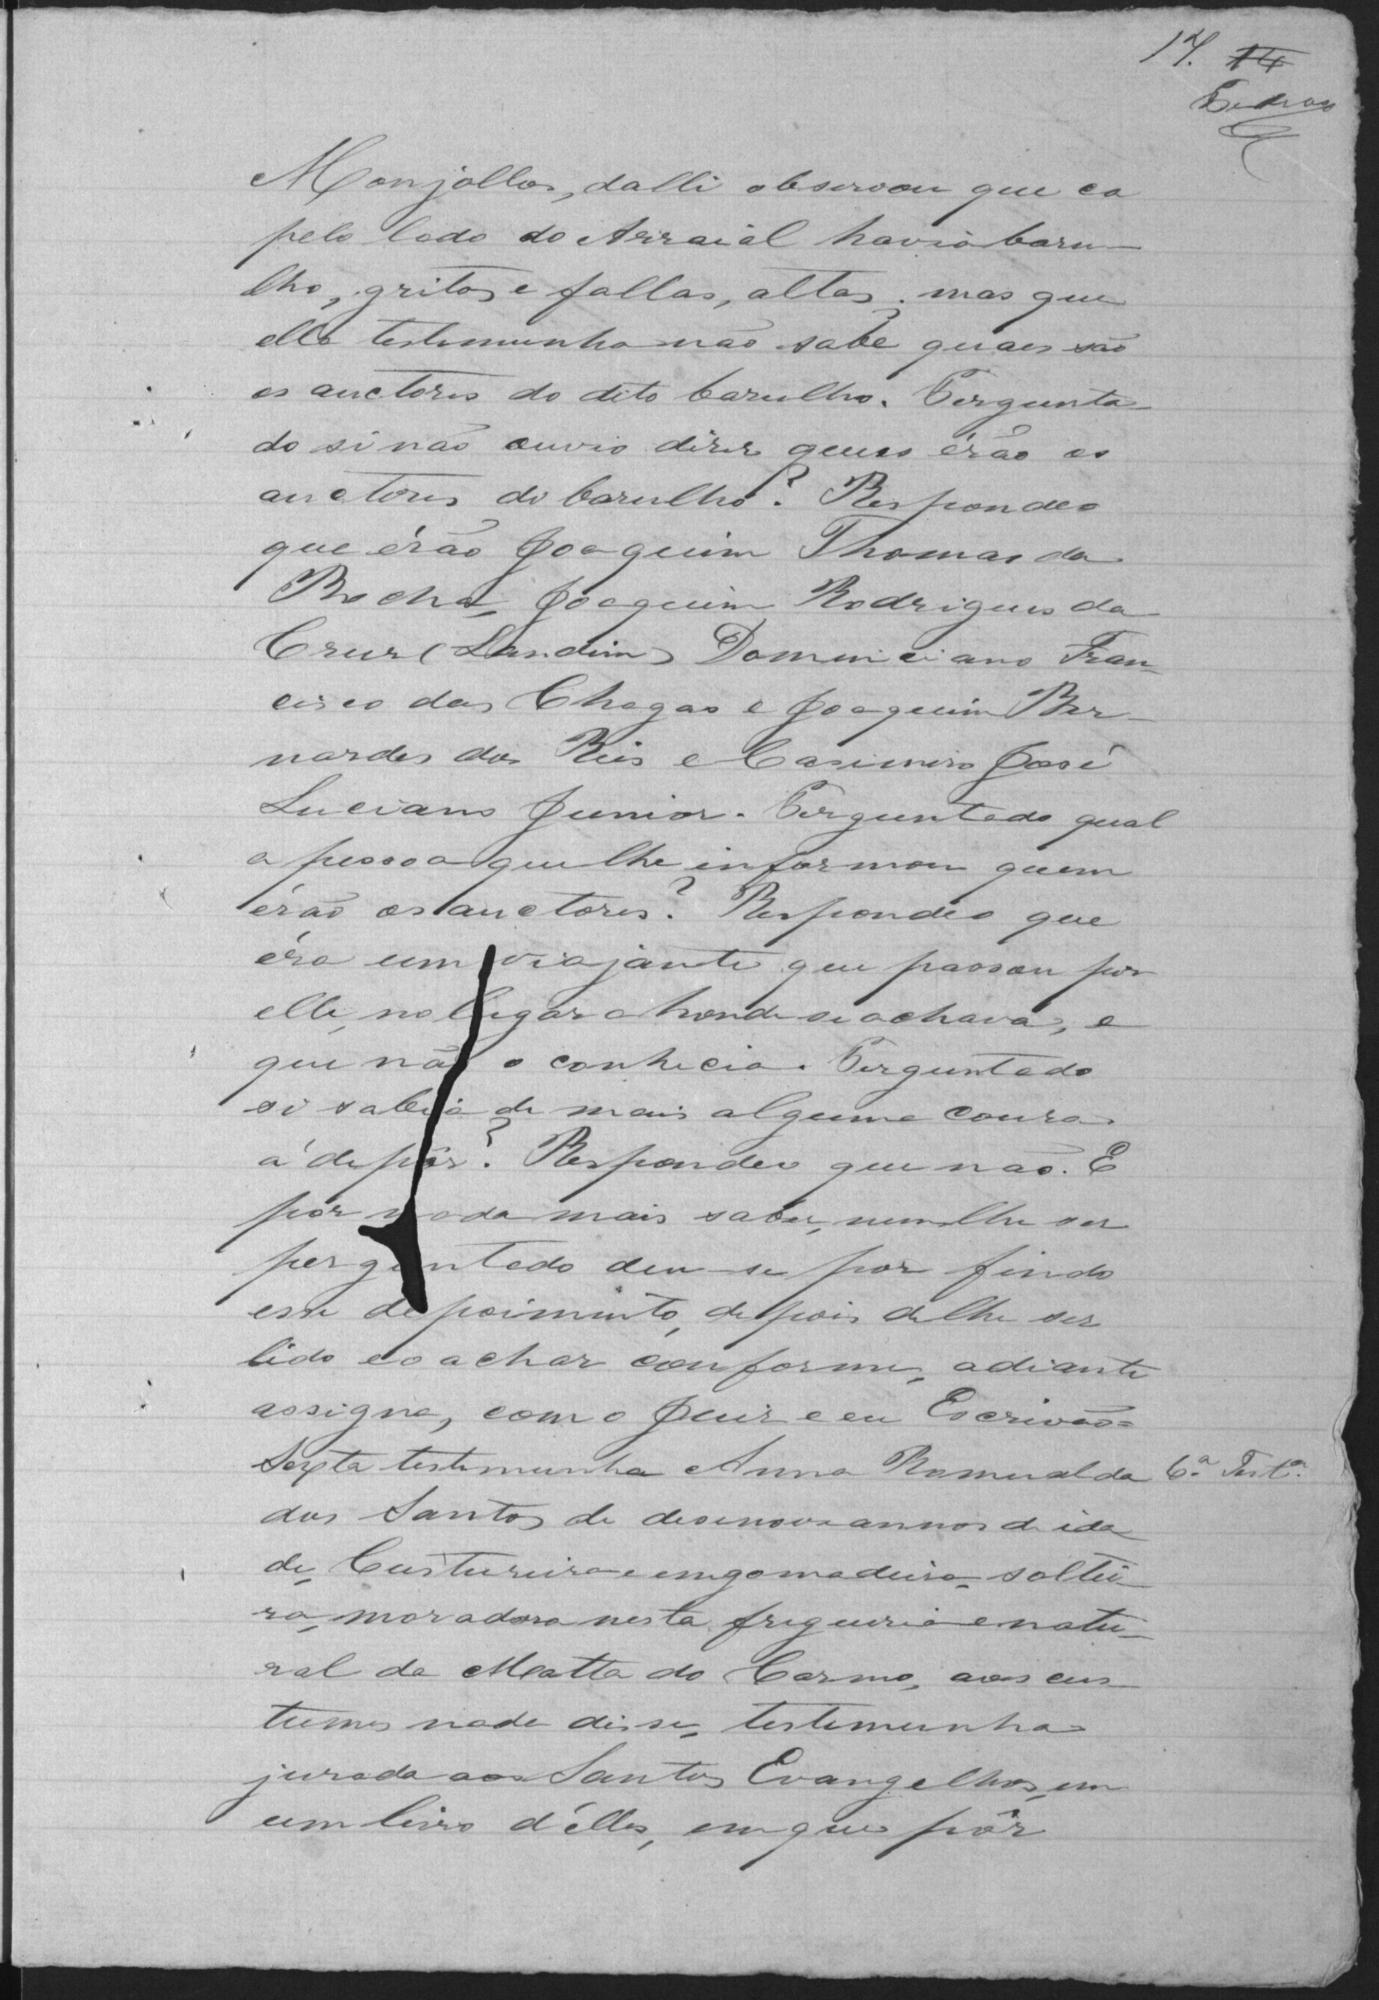 17. 14
Monjollos, dalli observou que ca
pelo lado do Arraial havia baru-
lho, gritos e fallas, altas, mas que
elle testemunha não sabe quaes são
os auctores do dito barulho. Pergunta-
do si não ouvio dizer quaes érão os
auctores do barulho? Respondeo
que érão Joaquim Thomas da
Rocha, Joaquim Rodrigues da
Cruz (Landim) Dominiciano Fran-
cisco das Chagas e Joaquim Ber-
nardes dos Reis e Casimiro José
Luciano Junior. Perguntado qual
a pessoa que lhe informou quem
érão os auctores? Respondeo que
éra um viajante que passou por
elle, no lugar ahonde se achava, e
que não o conhecia. Perguntado
si sabia de mais alguma couza
á depôr? Respondeo que não. E
por nada mais saber, nem lhe ser
perguntado deu-se por findo
esse depoimento, depois de lhe ser
lido e o achar conforme, adiante
assigna, com o Juiz e eu Escrivão=
Sexta testemunha Anna Romualda 6.ª Test.ª
dos Santos de desenove annos de ida
de, Custureira e emgomadeira, soltei-
ra, moradora nesta freguezia e natu-
ral da Matta do Carmo, aos cus
tumes nada disse, testemunha
jurada aos Santos Evangelhos, em
um livro d'élles, em que pôz